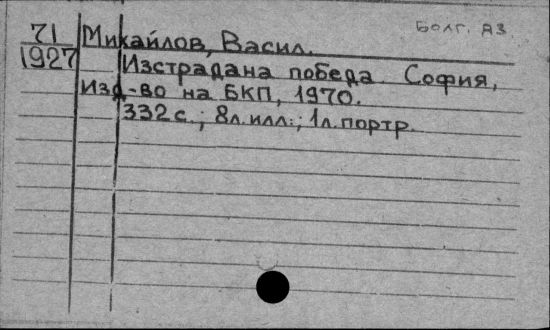 Болг. яз
71
1927
Михайлов, Васил.
Изстрадана победа. София,
Изд-во на БКП, 1970.
332 с.; 8л. илл.; 1л. портр.